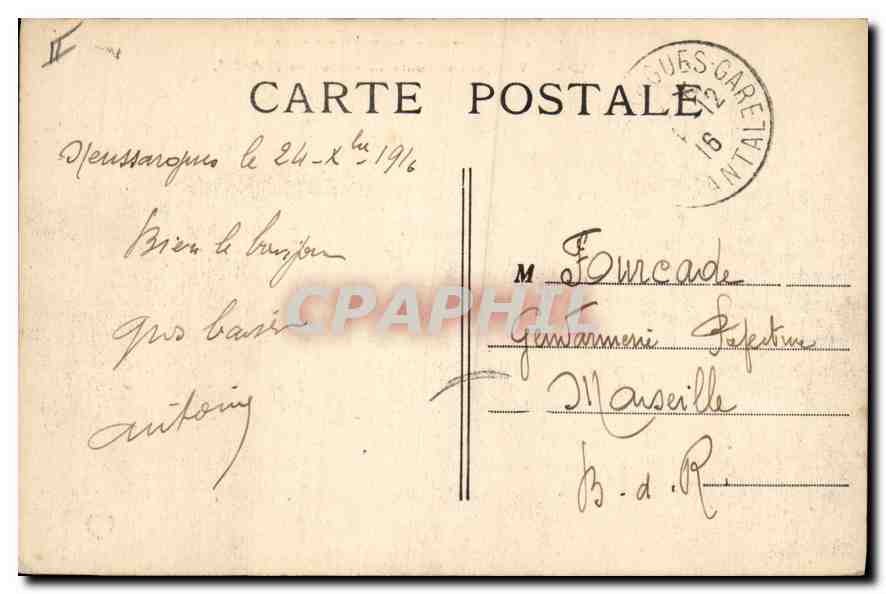 CARTE POSTALE
GUES-GARE
12
16
ANTAL
Neussargues le 24-Xbre-1916
Bien le bonjour
gros baisers
Antoine
M Fourcade
Gendarmerie Préfecture
Marseille
B.d.R.
CPAPHIL